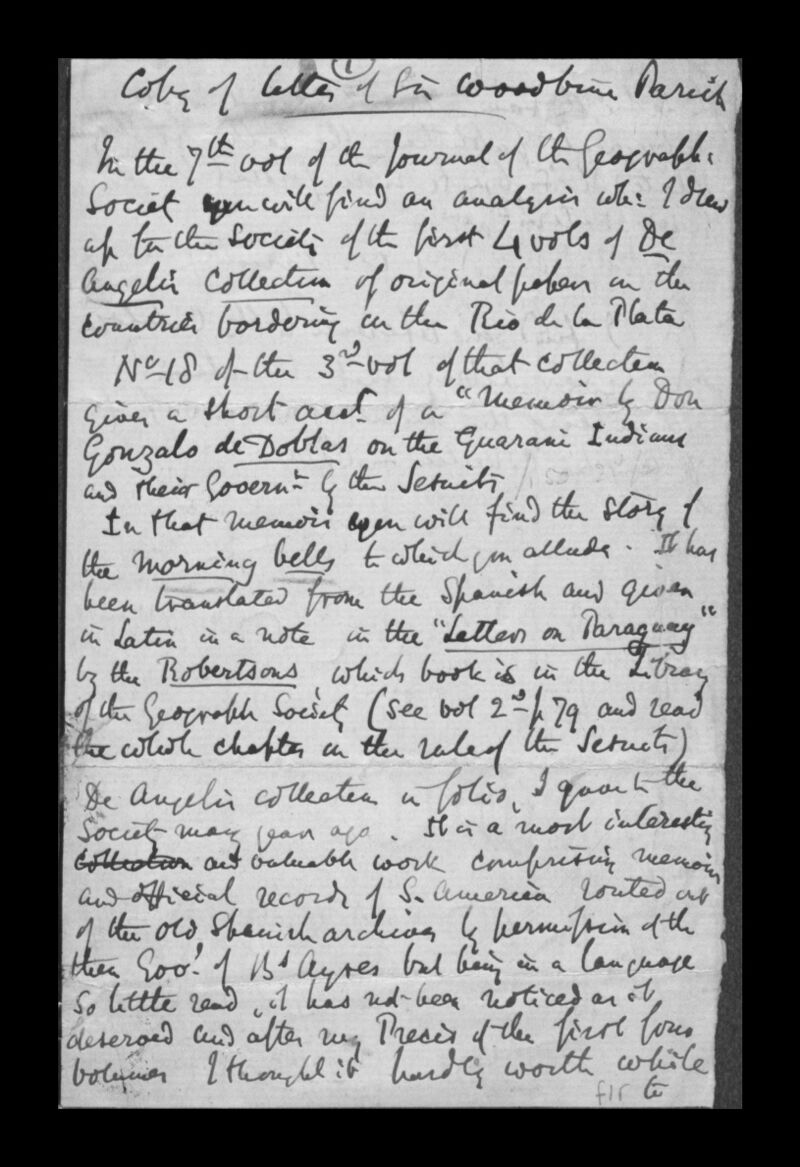 (1)
Copy of letter of Sir Woodbine Parish
In the 7th vol of the Journal of the Geograph:
Society you will find an analysis wh: I drew
up for the Society of the first 4 vols of De
Angelis Collection of original papers on the
countries bordering on the Rio de la Plata
No 18 of the 3rd vol of that collection
gives a short acct. of a "Memoir by Don
Gonzalo de Doblas on the Guarani Indians
and their Governt by the Jesuits
In that memoir you will find the story of
the morning bells to which you allude. It has
been translated from the Spanish and given
in Latin in a note in the "Letters on Paraguay"
by the Robertsons, which book is in the Library
of the Geograph Society (see vol 2nd p 79 and read
the whole chapter on the rule of the Jesuits)
De Angelis collection in folio, I gave to the
Society many years ago. It is a most interesting
collection and valuable work comprising memoirs
and official records of S. America routed out
of the old Spanish archives by permission of the
then Govt. of Bs Ayres but being in a language
so little read, it has not been noticed as it
deserved and after my Precis of the first four
volumes I thought it hardly worth while
f15 to